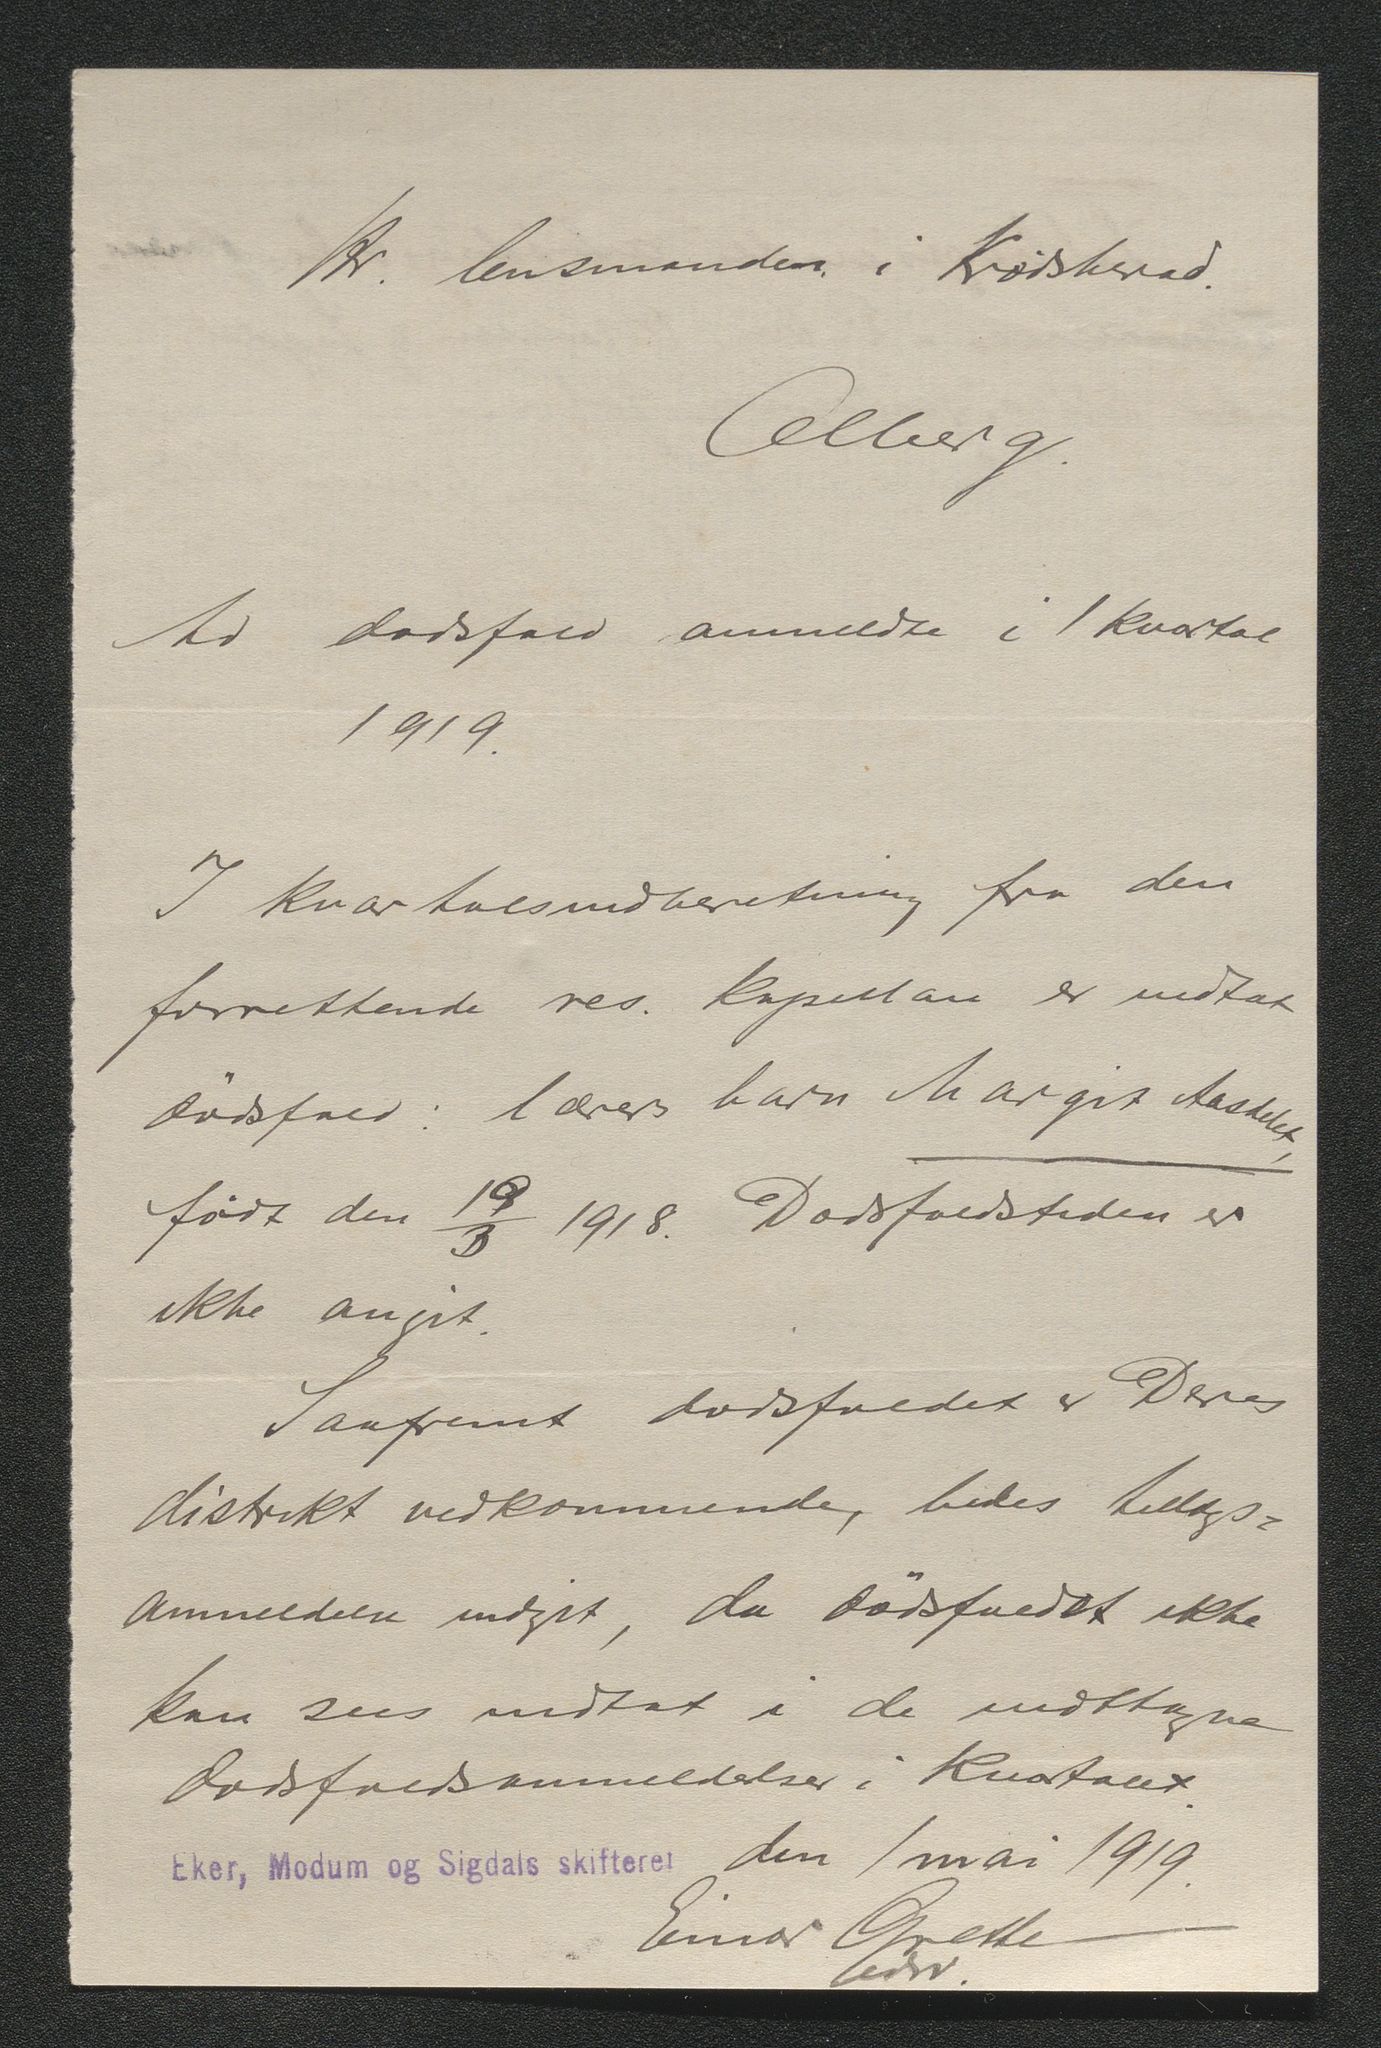 Hr. lensmanden i Krødsherad.
Olberg.
Ad dødsfald anmeldte i 1 kvartal
1919.
I kvartalsindberetning fra den
forrettende res. kapellan er indtat
dödsfald: lærers barn Margit Aasdelet,
født den 19/3 1918. Dødsfaldstiden er
ikke angit.
Saafremt dødsfaldet er Deres
distrikt vedkommende, bedes tillægs=
anmeldelse indgit, da dödsfaldet ikke
kan sees indtat i de indtagne
dødsfaldsanmeldelser i kvartalet.
Eker, Modum og Sigdals skifteret den 1 mai 1919.
Einar Grette
edsv.